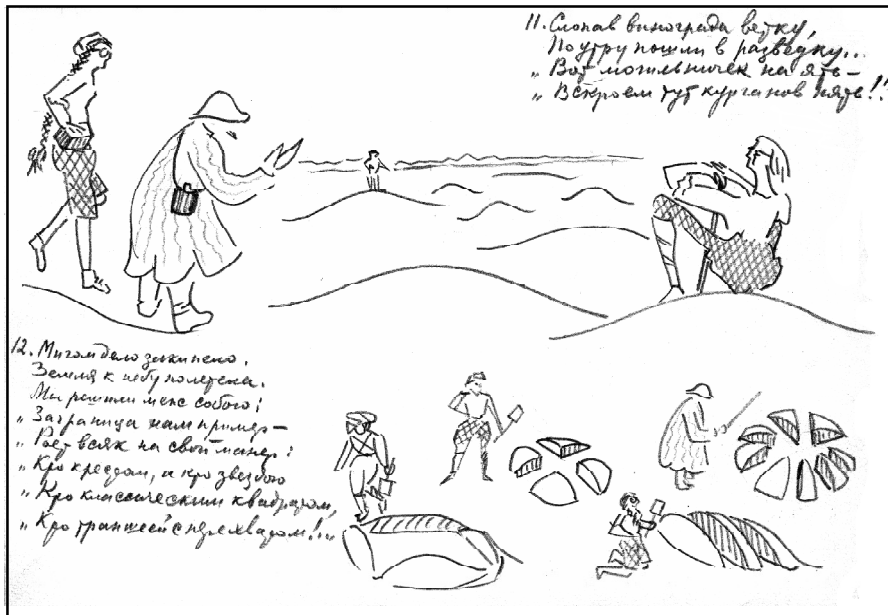 11. Слопав винограда ветку,
Поутру пошли в разведку...
„ Вот могильничек на ять –
„ Вскроем тут курганов пять!!
12. Мигом дело закипело.
Земля к небу полетела.
Мы решили меж собою:
„ Заграница нам пример –
„ Роет всяк на свой манер:
„ Кто крестом, а кто звездою
„ Кто классическим квадратом,
„ Кто траншеей с перехватом!...